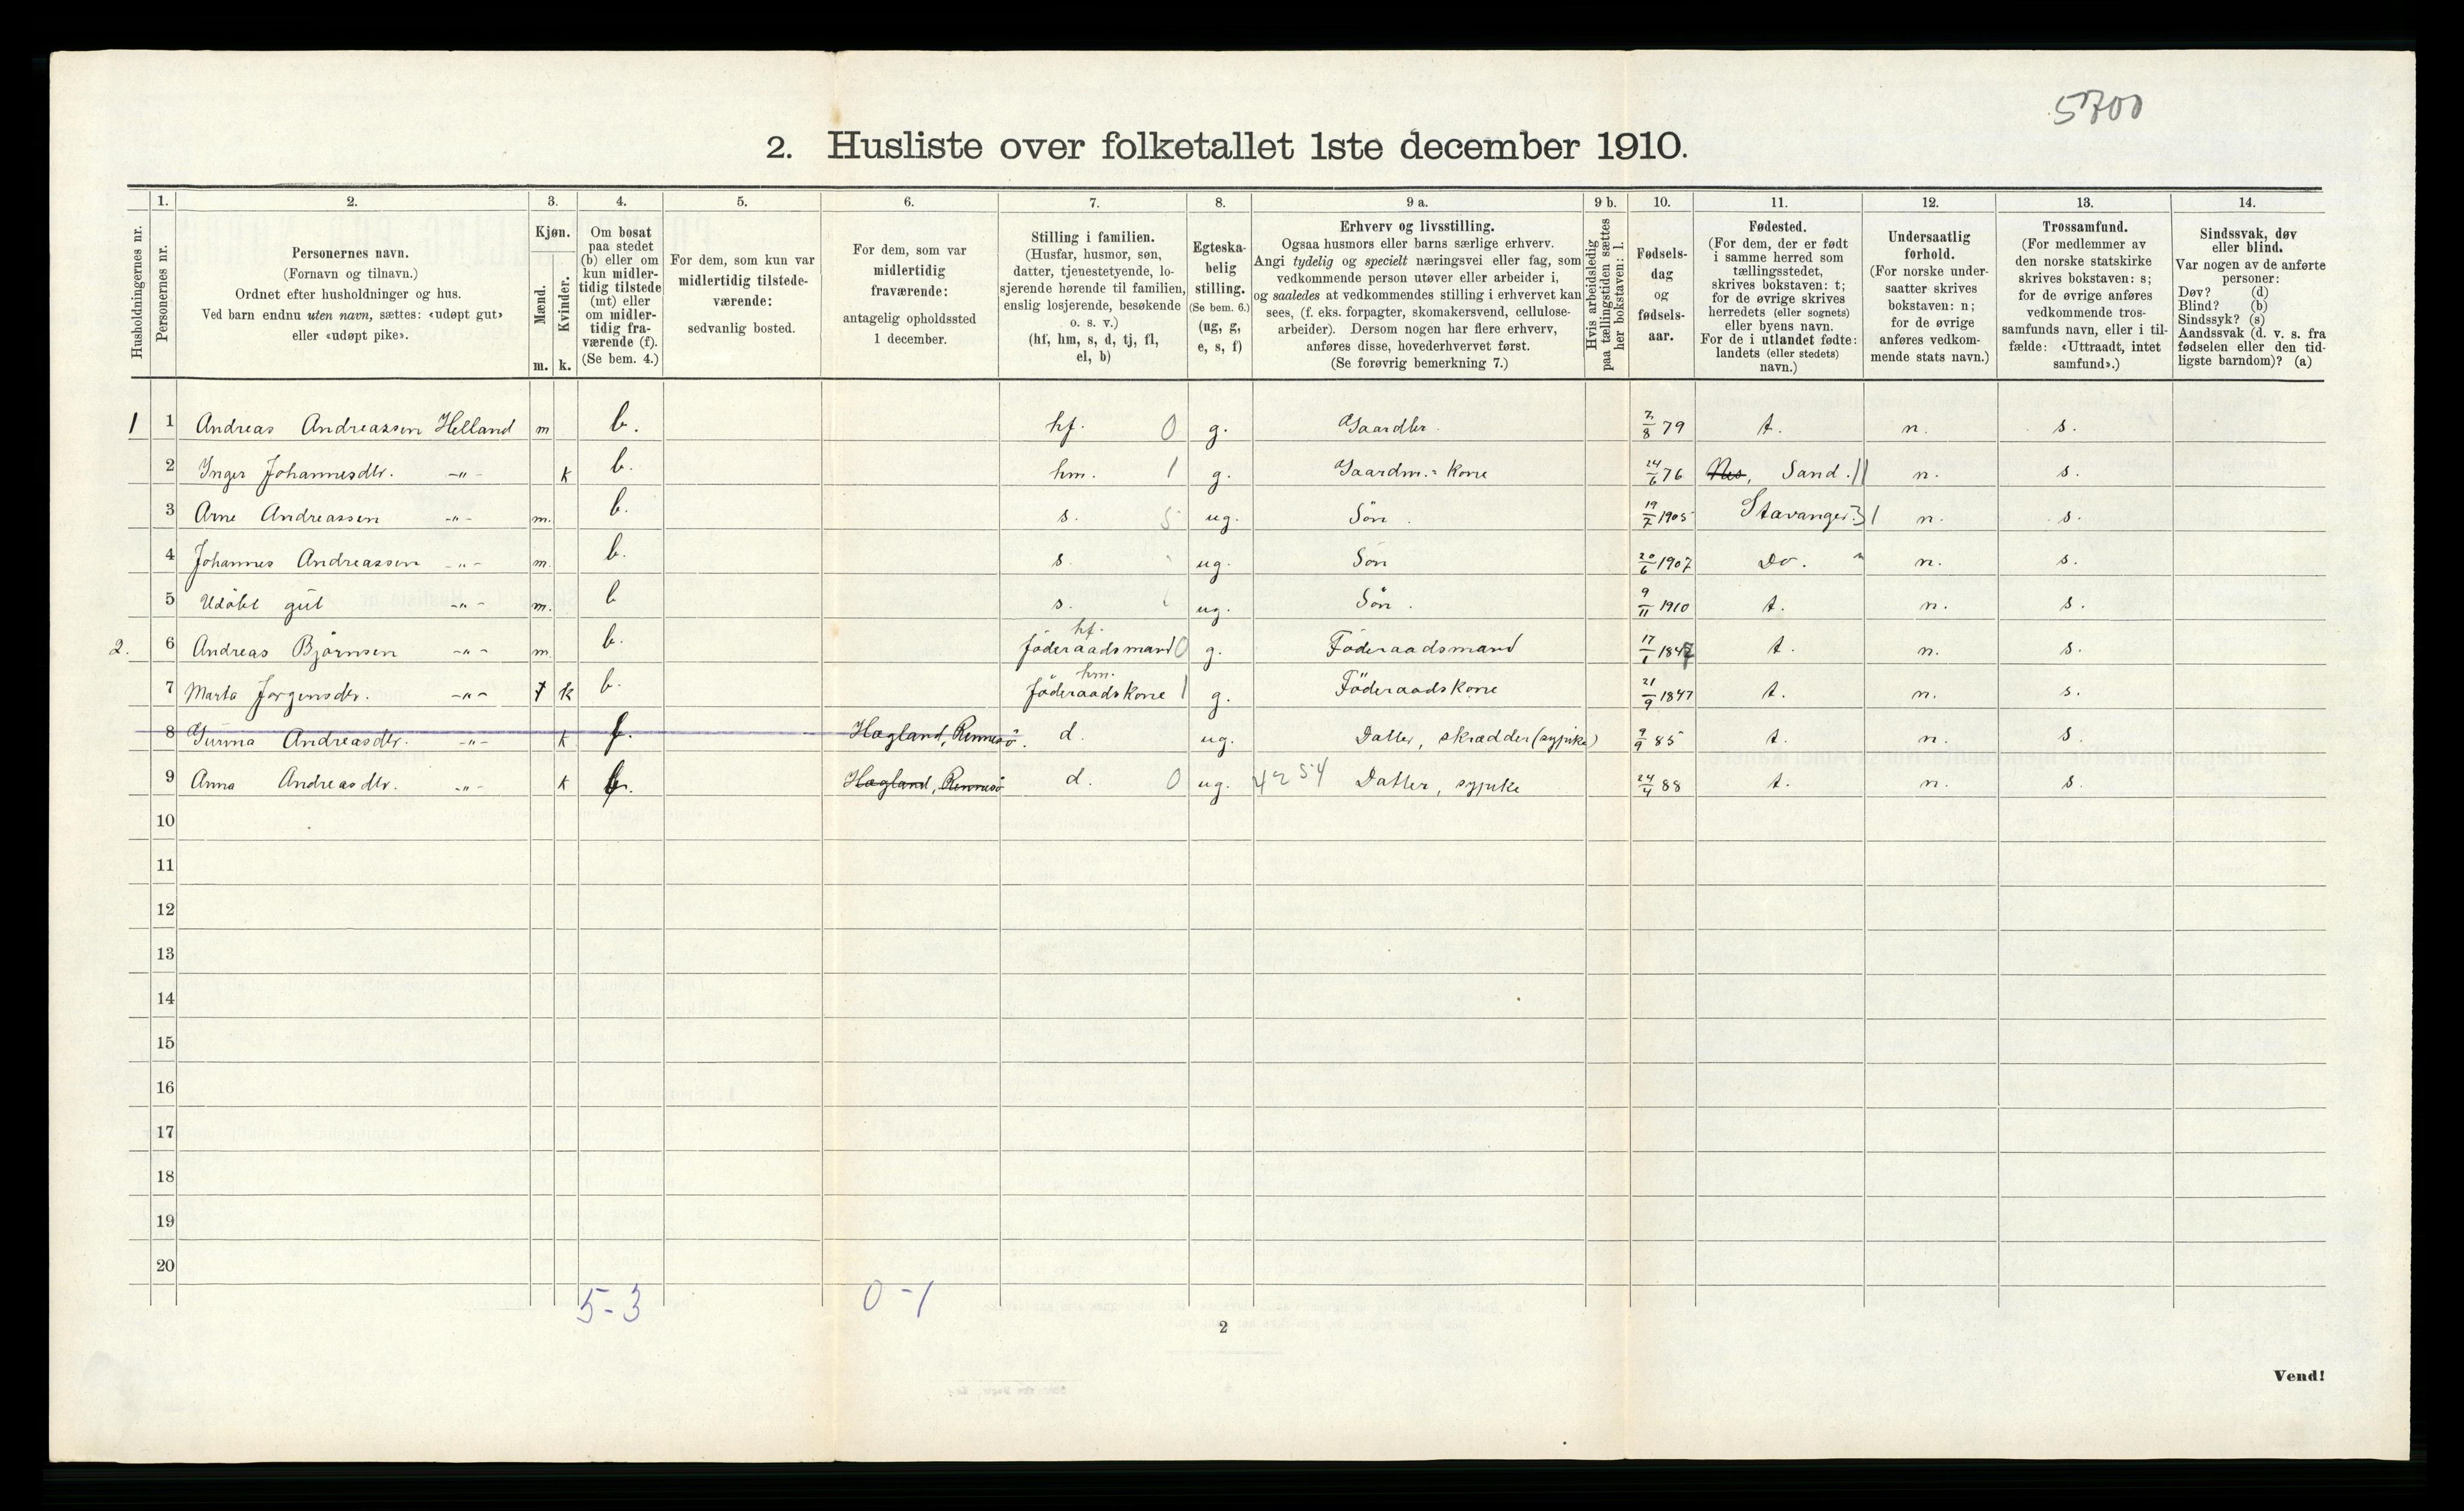 5700
2. Husliste over folketallet 1ste december 1910.
Husholdningernes nr.
1. Personernes nr.
2. Personernes navn. (Fornavn og tilnavn.) Ordnet efter husholdninger og hus. Ved barn endnu uten navn, sættes: «udøpt gut» eller «udøpt pike».
3. Kjøn. Mænd. m. Kvinder. k.
4. Om bosat paa stedet (b) eller om kun midlertidig tilstede (mt) eller om midlertidig fraværende (f). (Se bem. 4.)
5. For dem, som kun var midlertidig tilstedeværende: sedvanlig bosted.
6. For dem, som var midlertidig fraværende: antagelig opholdssted 1 december.
7. Stilling i familien. (Husfar, husmor, søn, datter, tjenestetyende, losjerende hørende til familien, enslig losjerende, besøkende o. s. v.) (hf, hm, s, d, tj, fl, el, b)
8. Egteskabelig stilling. (Se bem. 6.) (ug, g, e, s, f)
9 a. Erhverv og livsstilling. Ogsaa husmors eller barns særlige erhverv. Angi tydelig og specielt næringsvei eller fag, som vedkommende person utøver eller arbeider i, og saaledes at vedkommendes stilling i erhvervet kan sees, (f. eks. forpagter, skomakersvend, cellulosearbeider). Dersom nogen har flere erhverv, anføres disse, hovederhvervet først. (Se forøvrig bemerkning 7.)
9 b. Hvis arbeidsledig paa tællingstiden sættes her bokstaven: l.
10. Fødselsdag og fødselsaar.
11. Fødested. (For dem, der er født i samme herred som tællingsstedet, skrives bokstaven: t; for de øvrige skrives herredets (eller sognets) eller byens navn. For de i utlandet fødte: landets (eller stedets) navn.)
12. Undersaatlig forhold. (For norske undersaatter skrives bokstaven: n; for de øvrige anføres vedkommende stats navn.)
13. Trossamfund. (For medlemmer av den norske statskirke skrives bokstaven: s; for de øvrige anføres vedkommende trossamfunds navn, eller i tilfælde: «Uttraadt, intet samfund».)
14. Sindssvak, døv eller blind. Var nogen av de anførte personer: Døv? (d) Blind? (b) Sindssyk? (s) Aandssvak (d. v. s. fra fødselen eller den tidligste barndom)? (a)
1 1 Andreas Andreassen Helland m b. hf. 0 g. Gaardbr. 7/8 79 t. n. s.
2 Inger Johannesdtr. -"- k b. hm. 1 g. Gaardm.= kone 24/6 76 Nes, Sand. 11 n. s.
3 Arne Andreassen -"- m. b. s. 5 ug. Sön. 19/7 1905 Stavanger. 31 n. s.
4 Johannes Andreassen -"- m. b. s. ug. Sön 20/6 1907 Do. " n. s.
5 Udöbt gut -"- m. b s. ug. Sön. 9/11 1910 t. n. s.
2. 6 Andreas Björnsen -"- m. b. hf. föderaadsmand 0 g. Föderaadsmand 17/1 1847 t. n. s.
7 Marta Jorgensdtr. -"- k b. hm. föderaadskone 1 g. Föderaadskone 21/9 1847 t. n. s.
8 Gurina Andreasdtr. -"- k f. Hagland, Rennesö. d. ug. Datter, skrædder (sypike) 9/9 85 t. n. s.
9 Anna Andreasdtr. -"- k b. Hagland, Rennesö d. 0 ug. 4254 Datter, sypike 24/4 88 t. n. s.
10
11
12
13
14
15
16
17
18
19
20
5-3 0-1
2
Vend!